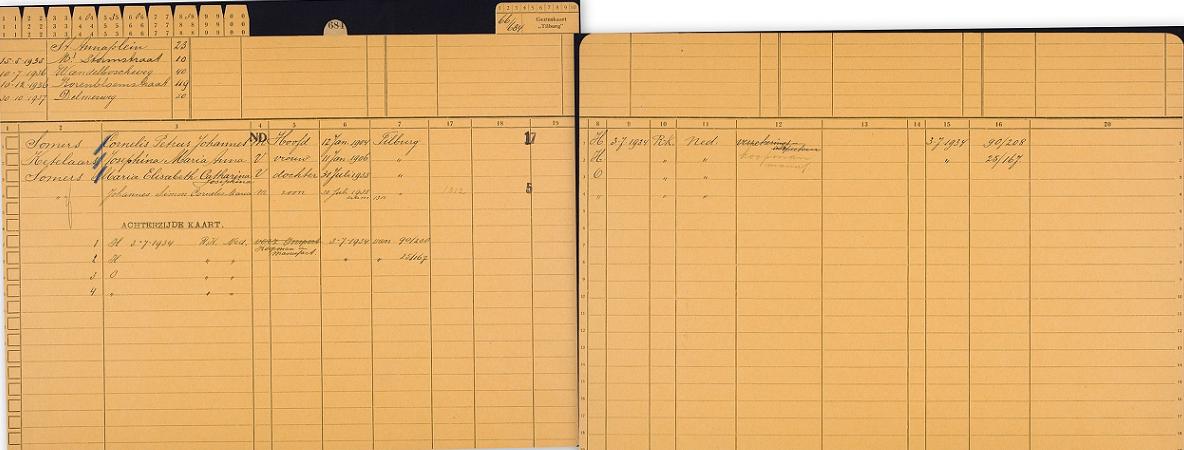 684
66/684
Gezinskaart
„Tilburg"
St. Annaplein 23
15-5-1935 Mr Stormstraat 10
10-7-1936 Wandelboscheweg 40
15-12-1936 Korenbloemstraat 49
30-10-1937 Delmerweg 20
1 2 3 4 5 6 7 17 18 19
Somers Cornelis Petrus Johannes M Hoofd 12 Jan. 1904 Tilburg 17
ND
Ketelaars Josephina Maria Anna V vrouw 11 Jan 1906 „
Somers Maria Elisabeth Catharina V dochter 30 Juli 1935 „
Josephina
„ Johannes Simon Cornelis Maria M zoon 30 Juli 1935 „ 1312 5
ACHTERZIJDE KAART.
1 H 3-7-1934 R.K. Ned. 3-7-1934 van 90/208
Koopman in
manufact.
2 H „ „ „ „ 25/167
3 O „ „
4 „ „ „
8 9 10 11 12 13 14 15 16 20
H 3-7-1934 R.k. Ned. 3-7-1934 90/208
H „ „ koopman „ 25/167
manuf
O „ „
„ „ „